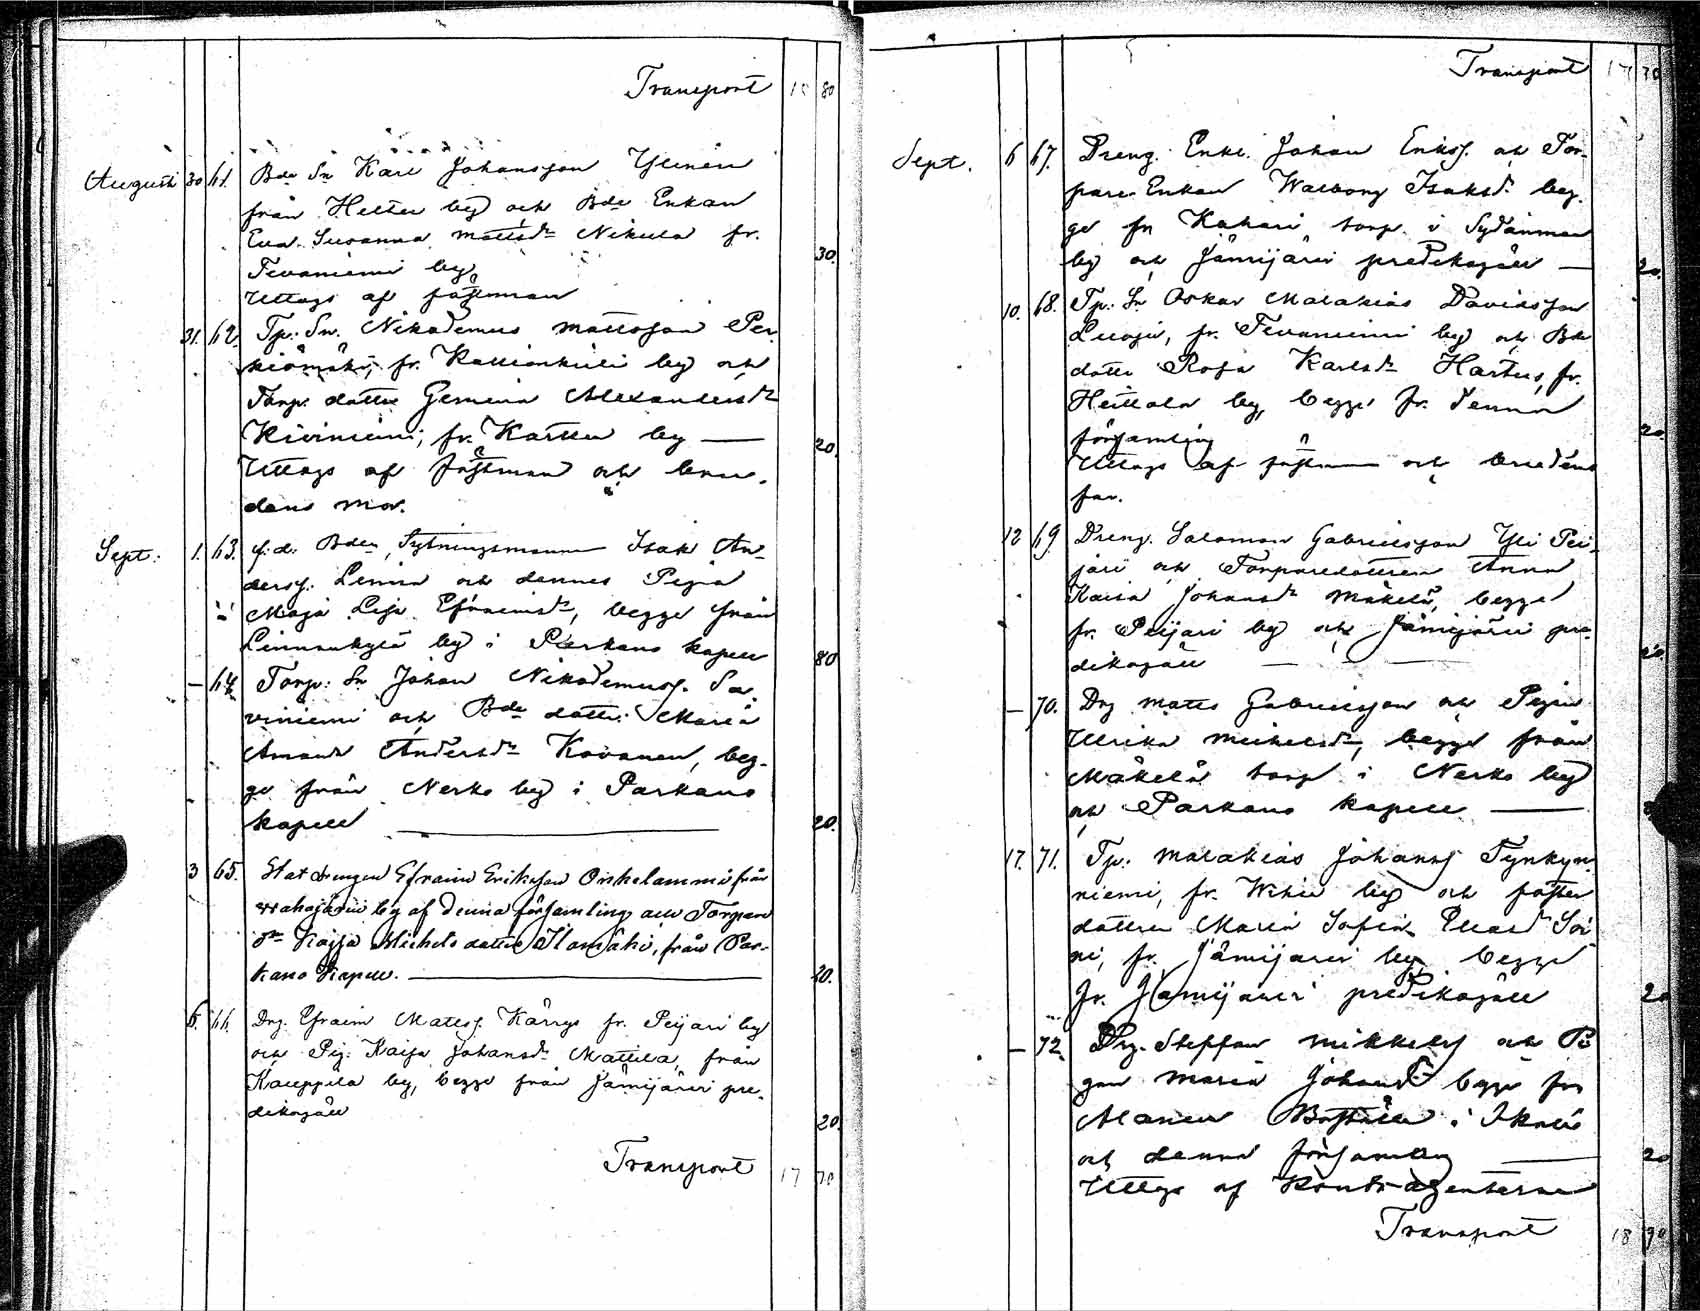 Transport 80
Augusti 30 61. Bde Sn Karl Johansson Ylinen
från by och Bde Enkan
Eva Susanna Mattsdr Nikula fr.
Tevaniemi by 30.
Uttags af fästman
31. 62. Tp. Sn. Nikodemus Mattsson Per-
kiömäki, fr. by och
Torp. dotter Gemina Alexandersdr
Kiviniemi, fr. Karttu by — 20.
Uttags af fästman och bru-
dens mor.
Sept. 1. 63. f.d. Bden, Sytningsmannen Isak An-
derss. Linna och dennes Pigia
Maja Lisa Efraimsdr, begge från
Linnankylä by i Parkano kapell 80
— 64. Torp. Sn Johan Nikodemuss. Sa-
viniemi och Bde dottr. Maria
Amanda Andersdr Kovanen, beg-
ge från Nerko by i Parkano
kapell — 20.
3 65. Statdrengen Efraim Eriksson Onkelammi från
by af denna församling och Torpare
dtr Kajsa Michelsdotter Ilomäki, från Par-
kano Kapell. — 20.
6. 66. Drg. Efraim Matss. Kärrys fr. Peijari by
och Pig. Kaisa Johansdr Mattila, från
Kauppila by, begge från Jämijärvi pre-
dikogäll 20.
Transport 17 70
Transport 17 70
Sept. 6 67. Dreng. Enkl. Johan Erikss. och Tor-
pare Enkan Walborg Isaksdr beg-
ge fr Kahari torp i Sydänmaa
by och Jämijärvi predikogäll — 20.
10. 68. Tp. Sn Oskar Malakias Davidsson
Luoja, fr. Tevaniemi by och Bde
dotter Rosa Karlsdr Hartus, fr.
Heittola by, begge fr. denna
församling 20.
Uttags af fästman och brudens
far.
12 69. Dreng. Salomon Gabrielsson Yli Pei-
jari och Torparedottren Anna
Kaisa Johansdr Mäkelä, begge
fr. Peijari by och Jämijärvi pre-
dikogäll — 20.
— 70. Drg Matts Gabrielsson och Pigan
Ulrika Michelsdr, begge från
Mäkelä torp i Nerko by
och Parkano kapell —
17. 71. Tp. Malakias Johanss Tynkyn-
niemi, fr. Wihu by och foster
dottren Maria Sofia Eliasdr Soi-
ni, fr. Jämijärvi by, begge
fr. Jämijärvi predikogäll 20
— 72. Drg. Steffan Mikkelss och Pi
gan Maria Johansdr begge frn
Manen Boställe i Ikalis
och denna församling — 20
Uttags af Kontragenterne
Transport 18 90